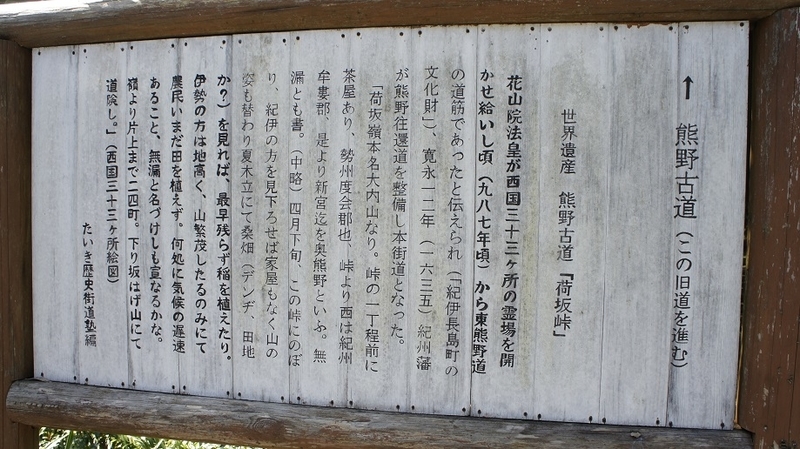 ↑ 熊野古道(この旧道を進む)
世界遺産 熊野古道「荷坂峠」
花山院法皇が西国三十三ヶ所の霊場を開
かせ給いし頃(九八七年頃)から東熊野道
の道筋であったと伝えられ(「紀伊長島町の
文化財」)、寛永一二年(一六三五)紀州藩
が熊野往還道を整備し本街道となった。
「荷坂嶺本名大内山なり。峠の一丁程前に
茶屋あり、勢州度会郡也、峠より西は紀州
牟婁郡、是より新宮迄を奥熊野といふ。無
漏とも書。(中略)四月下旬、この峠にのぼ
り、紀伊の方を見下ろせば家屋もなく山の
姿も替わり夏木立にて桑畑(デンヂ、田地
か?)を見れば、最早残らず稲を植えたり。
伊勢の方は地高く、山繁茂したるのみにて
農民いまだ田を植えず。何処に気候の遅速
あること、無漏と名づけしも宣なるかな。
嶺より片上まで二四町。下り坂はげ山にて
道険し。」(西国三十三ヶ所絵図)
たいき歴史街道塾編